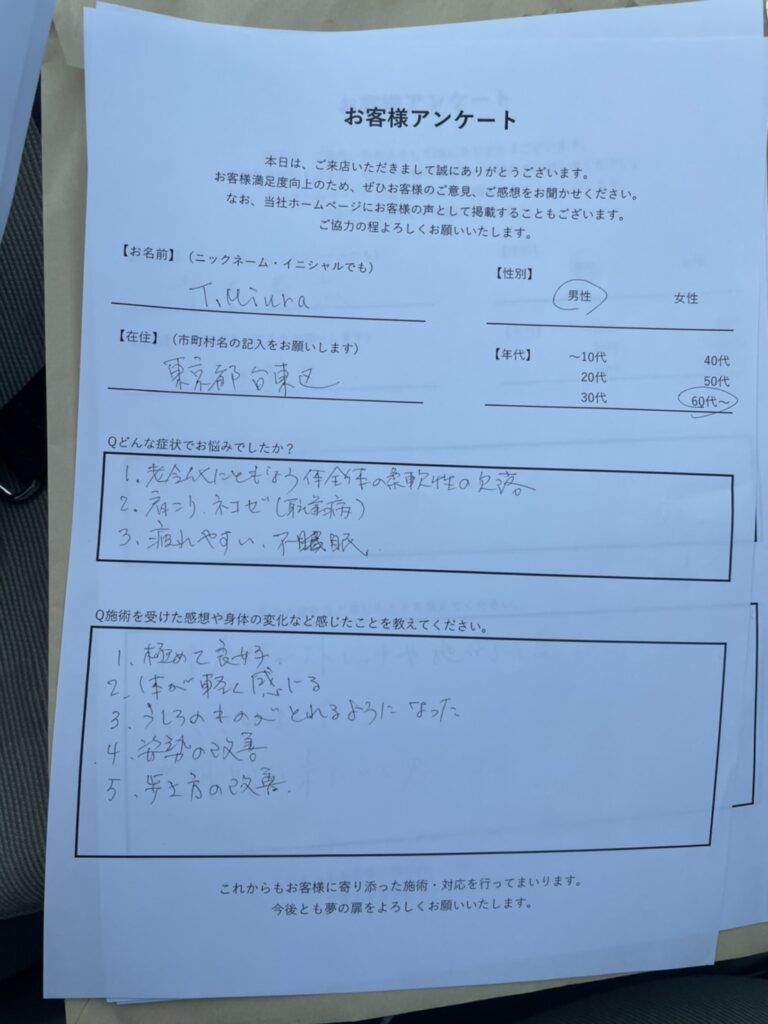 お客様アンケート
本日は、ご来店いただきまして誠にありがとうございます。
お客様満足度向上のため、ぜひお客様のご意見、ご感想をお聞かせください。
なお、当社ホームページにお客様の声として掲載することもございます。
ご協力の程よろしくお願いいたします。
【お名前】（ニックネーム・イニシャルでも）
T.Miura
【性別】
男性 女性
【在住】（市町村名の記入をお願いします）
東京都台東区
【年代】 〜10代 40代
20代 50代
30代 60代〜
Qどんな症状でお悩みでしたか？
1. 老令化にともなう体全体の柔軟性の欠落
2. 肩こり、ネコゼ（職業病）
3. 疲れやすい、不眠
Q施術を受けた感想や身体の変化など感じたことを教えてください。
1. 極めて良好
2. 体が軽く感じる
3. うしろのものがとれるようになった
4. 姿勢の改善
5. 歩き方の改善.
これからもお客様に寄り添った施術・対応を行ってまいります。
今後とも夢の扉をよろしくお願いいたします。